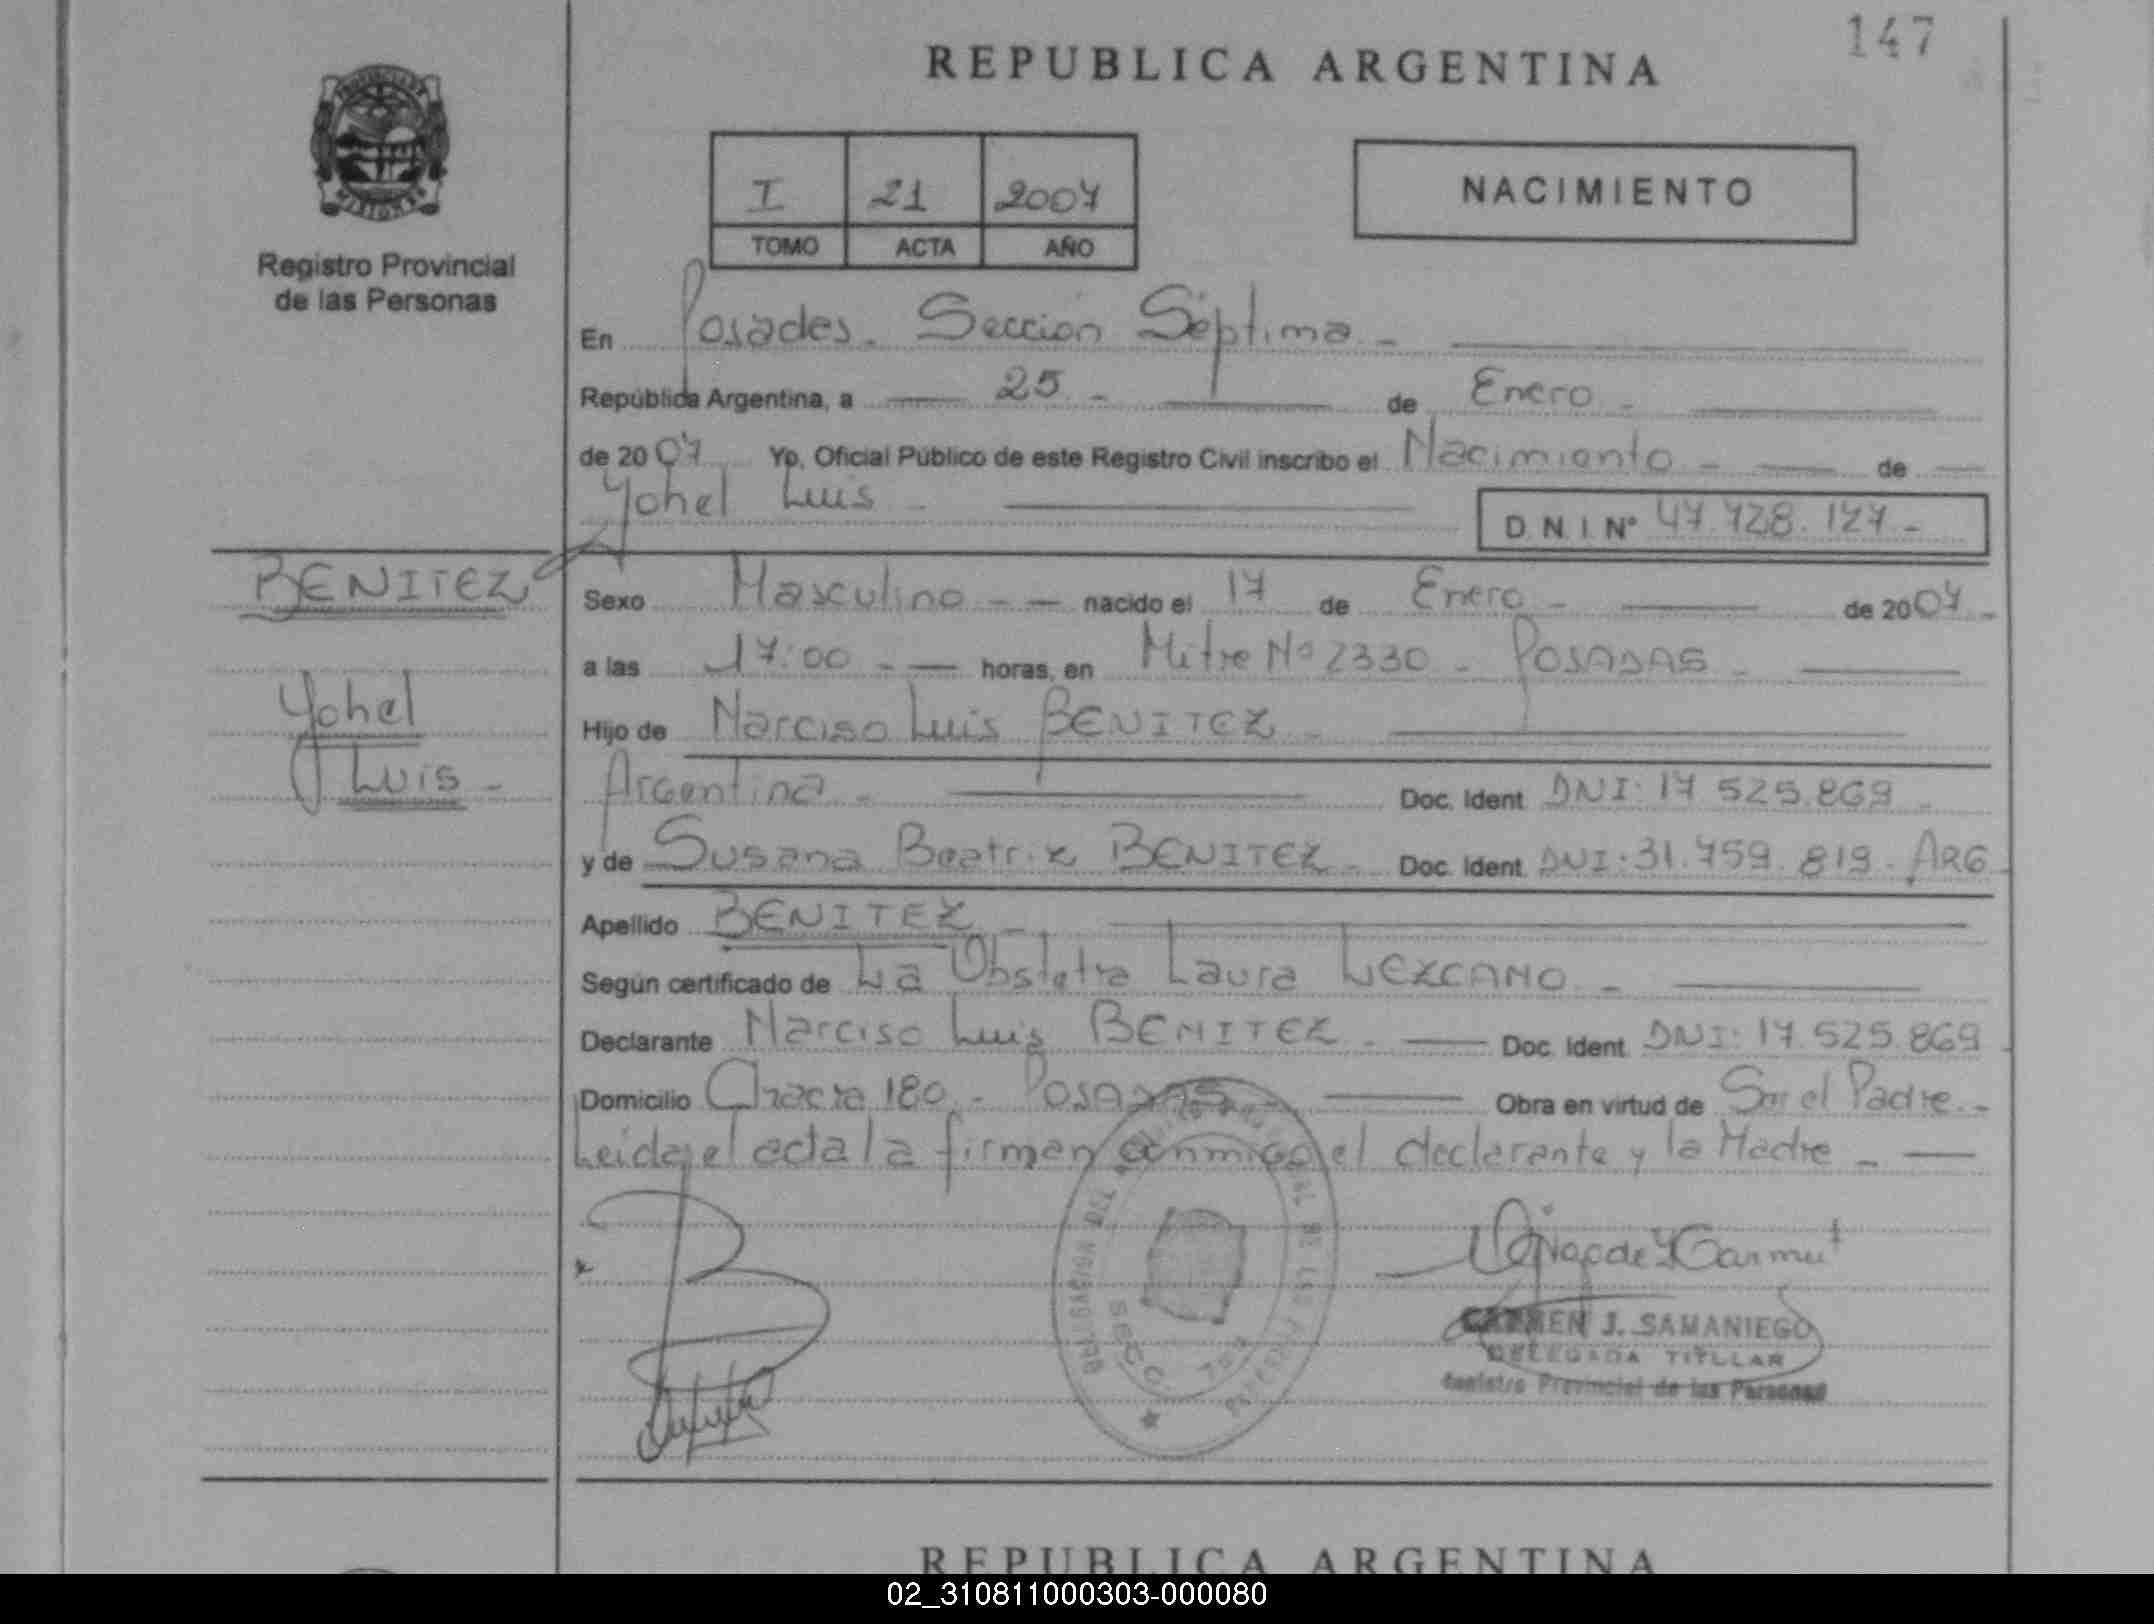 147
REPUBLICA ARGENTINA
MISIONES
Registro Provincial
de las Personas
I 21 2007
TOMO ACTA AÑO
NACIMIENTO
En Posadas. Sección Séptima -
República Argentina, a 25 - de Enero -
de 2007 Yo, Oficial Público de este Registro Civil inscribo el Nacimiento - de
Yohel Luis -
D.N.I. N° 47.728.127 -
BENITEZ
Yohel
Luis -
Sexo Masculino - - nacido el 17 de Enero - de 2007 -
a las 17:00 - - horas, en Mitre Nº 2330 - POSADAS -
Hijo de Narciso Luis BENITEZ -
Argentina - Doc. Ident. DNI: 17 525.869 -
y de Susana Beatriz BENITEZ - Doc. Ident. DNI: 31.759.819. ARG
Apellido BENITEZ -
Según certificado de La Obstetra Laura LEZCANO -
Declarante Narciso Luis BENITEZ - Doc. Ident. DNI: 17.525.869
Domicilio Chacra 180 - POSADAS Obra en virtud de Ser el Padre -
Leida el acta la firman conmigo el declarante y la Madre -
CARMEN J. SAMANIEGO
DELEGADA TITULAR
Registro Provincial de las Personas
REPUBLICA ARGENTINA
02_310811000303-000080